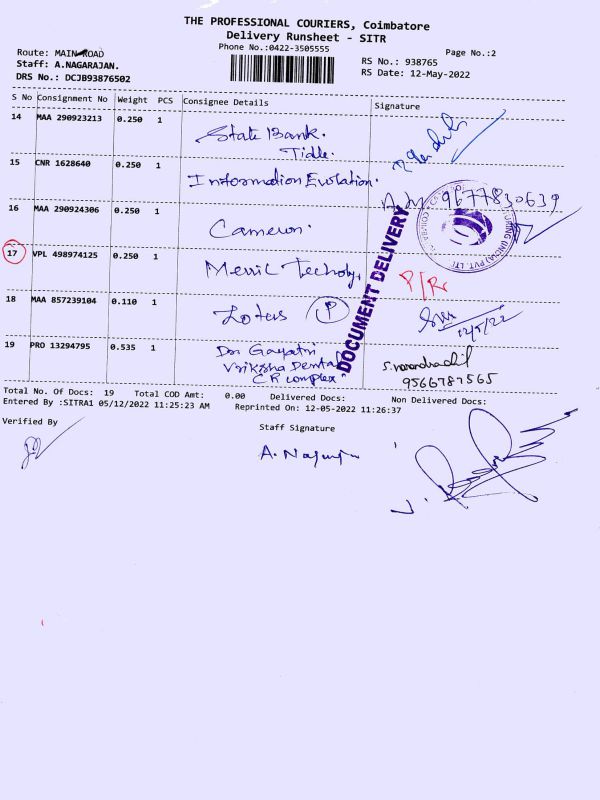 THE PROFESSIONAL COURIERS, Coimbatore
Delivery Runsheet - SITR
Phone No.:0422-3505555
Page No.:2
Route: MAIN ROAD
Staff: A.NAGARAJAN.
DRS No.: DCJB93876502
RS No.: 938765
RS Date: 12-May-2022
S No Consignment No Weight PCS Consignee Details Signature
14 MAA 290923213 0.250 1 State Bank.
Tidle.
15 CNR 1628640 0.250 1 Information Evolation.
9677830639
16 MAA 290924306 0.250 1 Cameron.
17 VPL 498974125 0.250 1 Merril Techoly. P/Rc
18 MAA 857239104 0.110 1 Lotus P
12/5/22
19 PRO 13294795 0.535 1 Dr Gayatri
Vriksha Dental
CR complex
9566787565
DOCUMENT DELIVERY
Total No. Of Docs: 19 Total COD Amt: 0.00 Delivered Docs: Non Delivered Docs:
Entered By :SITRA1 05/12/2022 11:25:23 AM Reprinted On: 12-05-2022 11:26:37
Verified By
Staff Signature